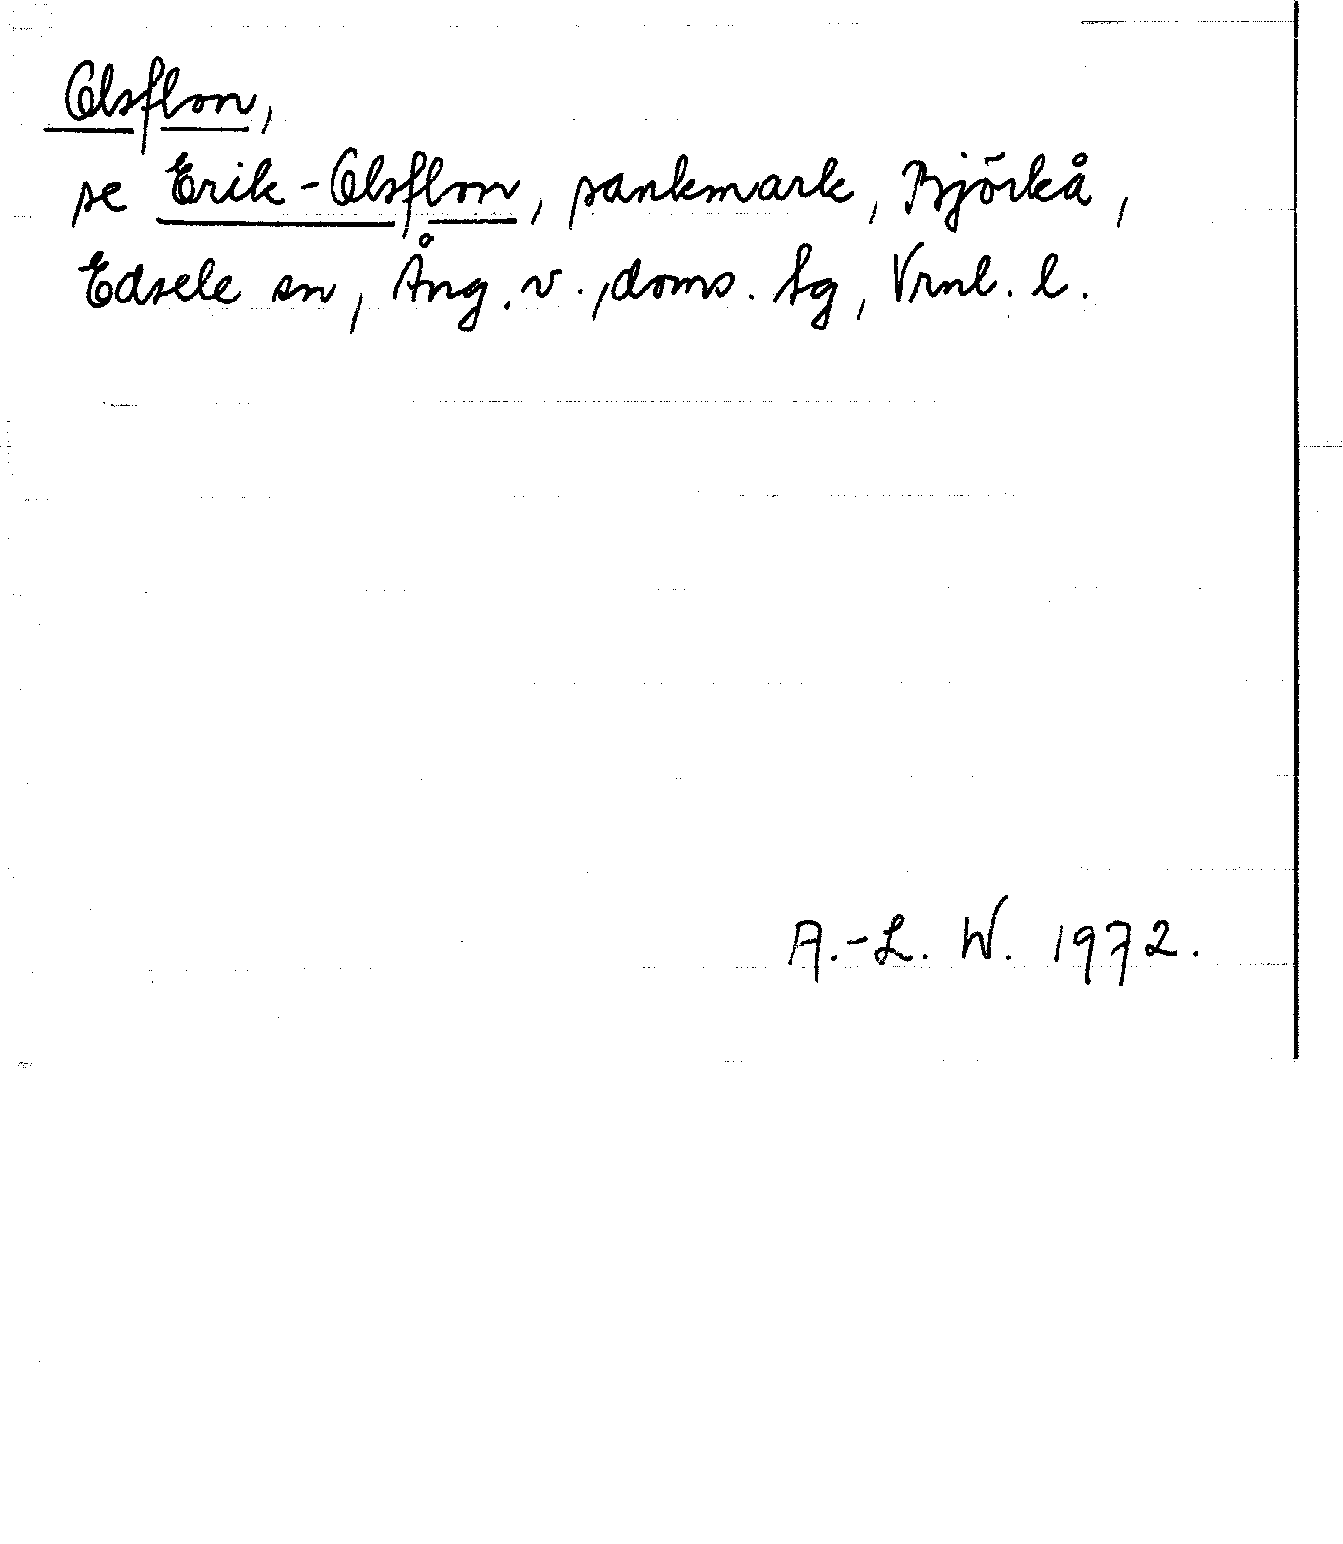 Olsflon,
se Erik-Olsflon, sankmark, Björkå,
Edsele sn, Ång. v., doms. sg, Vrnl. l.
A.-L. W. 1972.